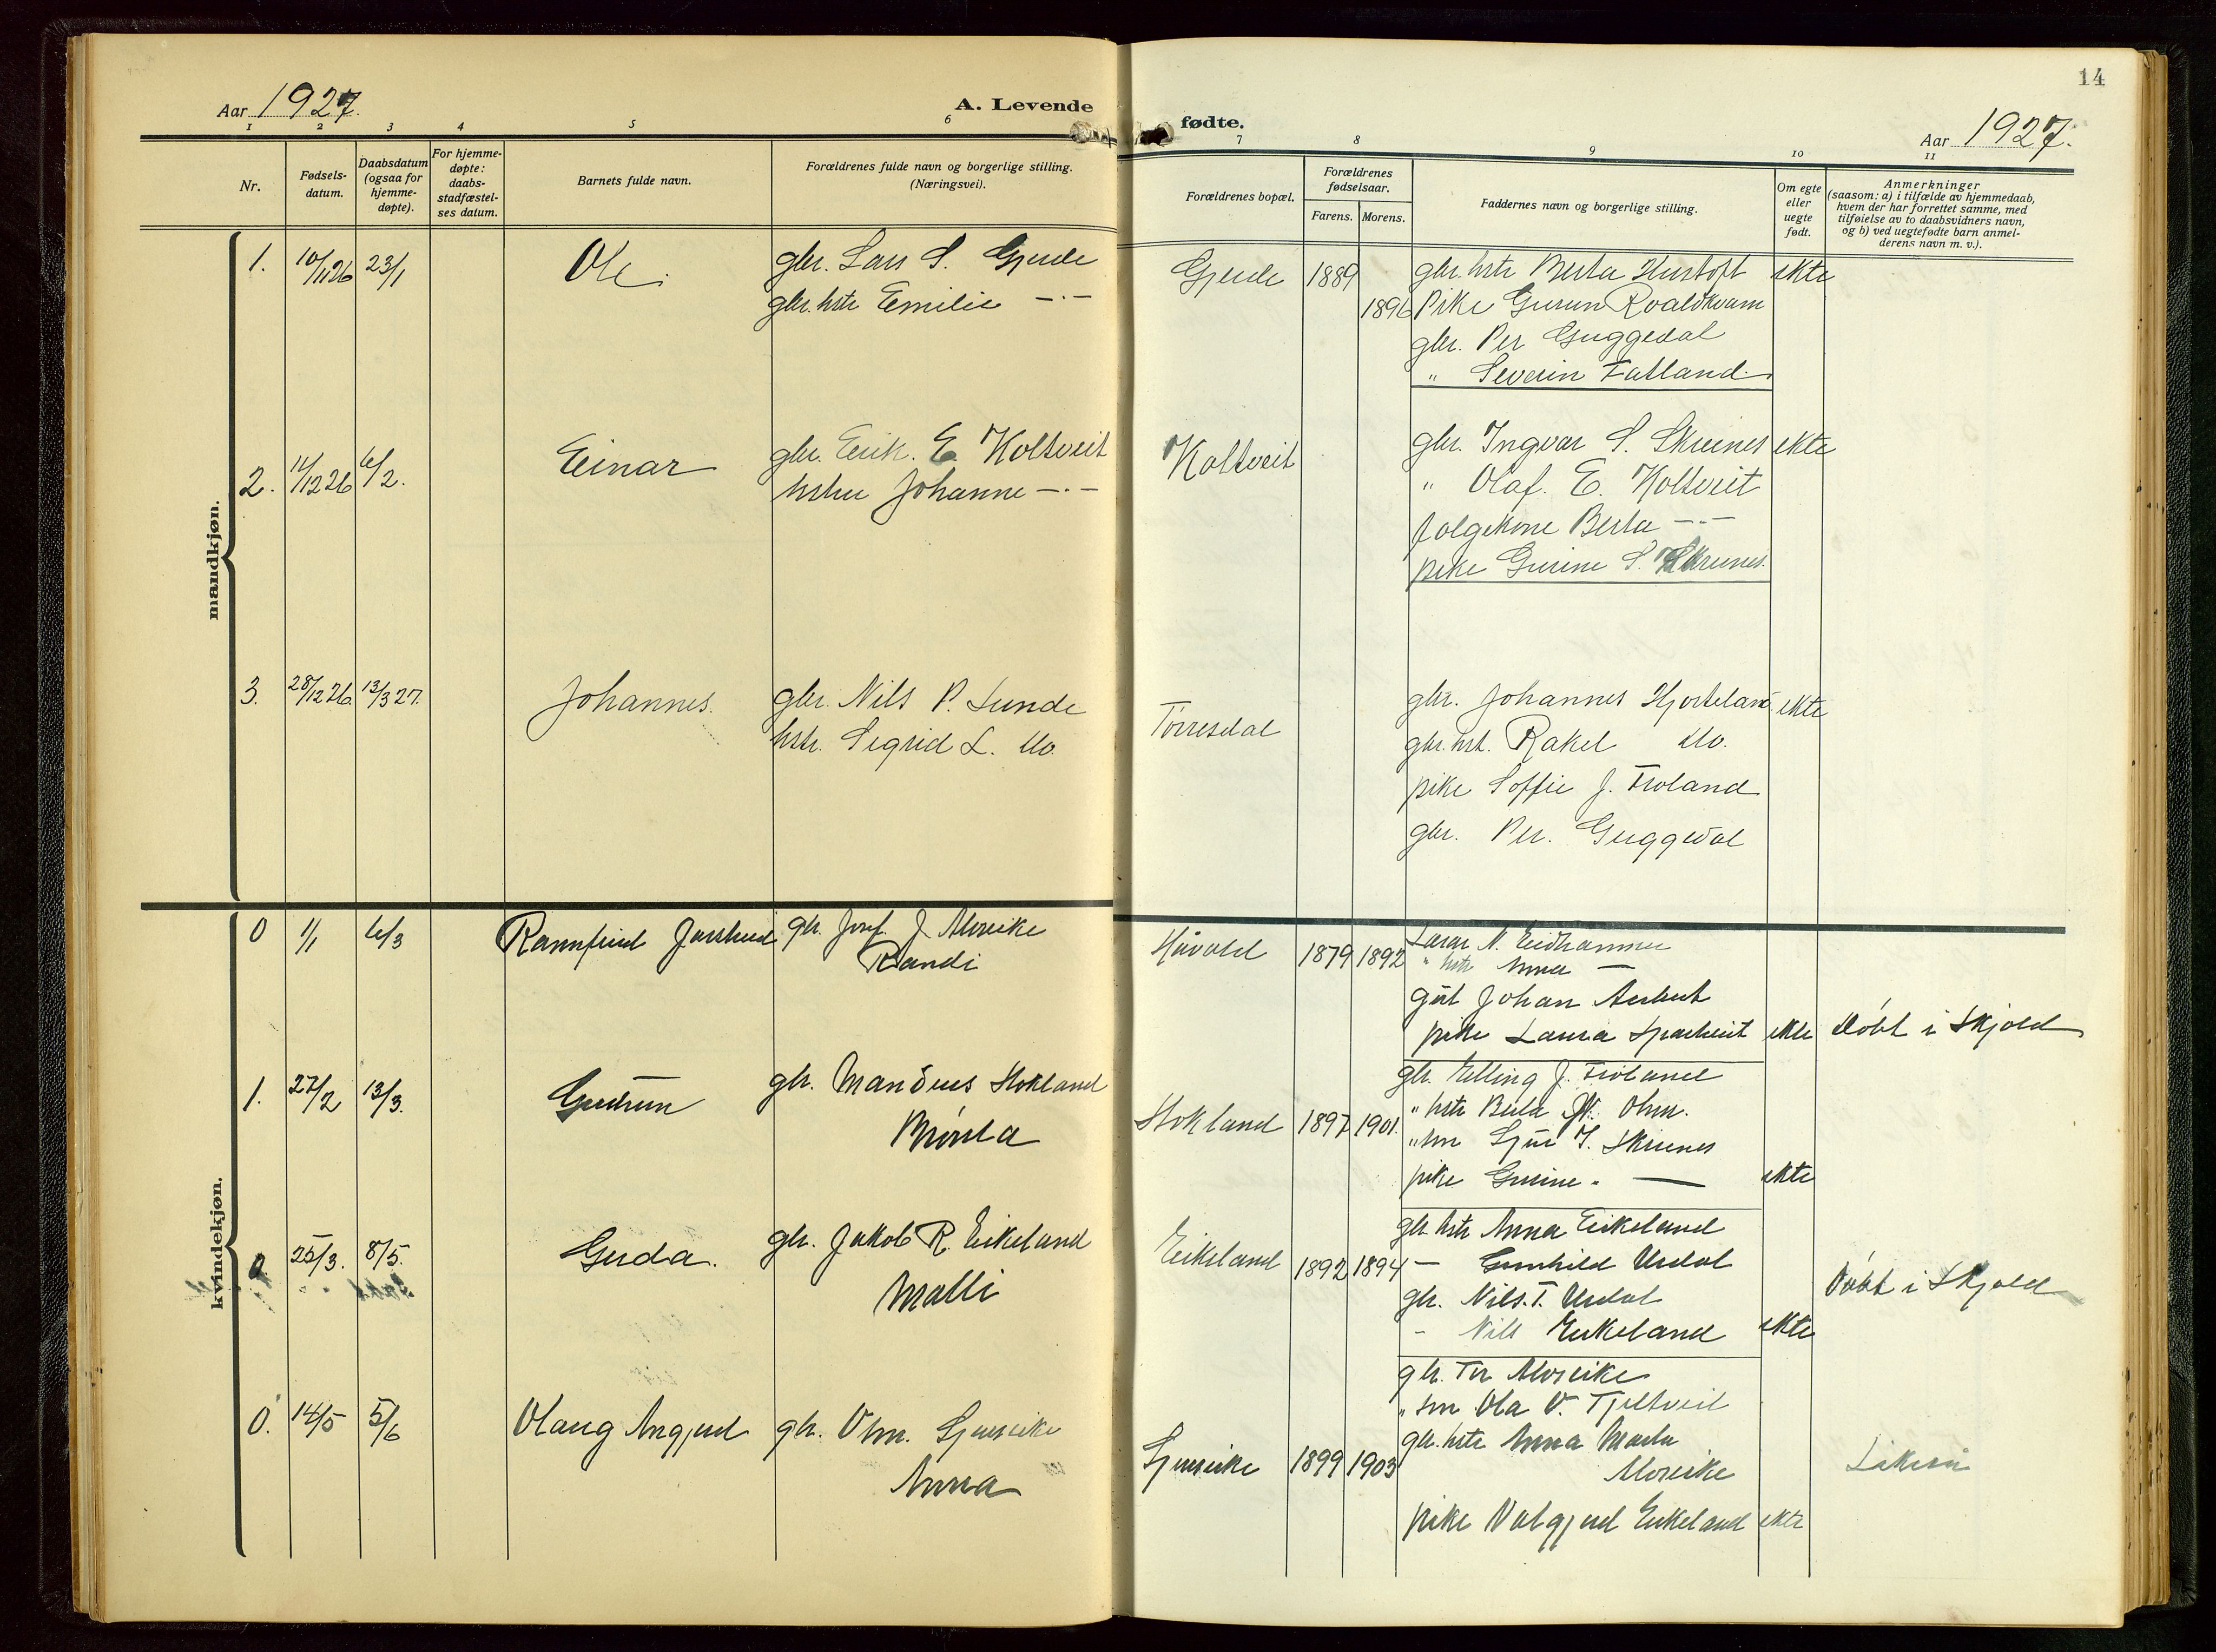 14
Aar 1927.
A. Levende
fødte.
Aar 1927.
1 2 3 4 5 6 7 8 9 10 11
Nr.
Fødsels-
datum.
Daabsdatum
(ogsaa for
hjemme-
døpte).
For hjemme-
døpte:
daabs-
stadfæstel-
ses datum.
Barnets fulde navn.
Forældrenes fulde navn og borgerlige stilling.
(Næringsvei).
Forældrenes bopæl.
Forældrenes
fødselsaar.
Farens. Morens.
Faddernes navn og borgerlige stilling.
Om egte
eller
uegte
født.
Anmerkninger
(saasom: a) i tilfælde av hjemmedaab,
hvem der har forrettet samme, med
tilføielse av to daabsvidners navn,
og b) ved uegtefødte barn anmel-
derens navn m. v.).
mandkjøn.
1. 10/11 26 23/1 Ole.
gbr. Lars S. Gjerde
gbr. hstr Emilie -.-
Gjerde 1889
1896
gbr. hstr Berta Hustoft ekte
Pike Gurun Roaldkvam
gbr. Per Guggedal
" Severin Fatland.
2. 14/12 26 6/2. Einar
gbr. Erik. E. Koltveit
hstru Johanne -.-
Koltveit
gbr. Ingvar S. Skeines ekte
" Olaf. E. Koltveit
folgekone Berta -.-
pike Gurine S. Skeines.
3. 28/12 26. 13/3 27. Johannes.
gbr. Nils P. Lunde
hstr. Sigrid L. do.
Tørresdal
gbr. Johannes Hjorteland ekte
gbr. hst. Rakel do.
pike Soffie J. Froland
gbr. Per. Guggedal
kvindekjøn.
0 1/1 6/3
gbr. J. Alvseike
Randi
Håvold 1879 1892
" hstr Anna —
gut Johan
pike Laura ekte
Døbt i Skjold
1. 27/2 13/3. Gudrun
gbr. Mandius Stokland
Stokland 1897 1901.
gbr. Elling J. Froland
" hstr Berta
pike Gurine. — ekte
0 25/3. 8/5. Gerda.
gbr. Jakob R. Eikeland
Malli
Eikeland 1892 1894
gbr. hstr Anna Eikeland
— Gunhild Urdal
gbr. Nils. T. Urdal
- Nils Eikeland ekte
Døbt i Skjold
0. 14/5 5/6 Olaug Angjerd
gbr. Olm.
Anna
1899 1903
gbr. Alvseike
" Ola V. Tjeltveit
gbr. hstr Anna Marta
Alvseike
pike Valgjerd Eikeland ekte